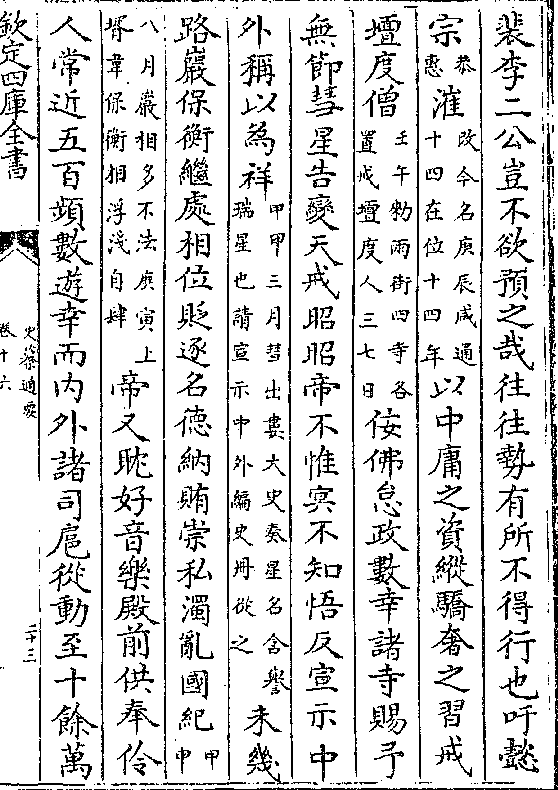 裴李二公豈不欲預之哉往往勢有所不得行也吁懿
宗恭惠漼改今名庚辰咸通十四在位十四年以中庸之資縱驕奢之習戒
壇度僧壬午勅兩街四寺各置戒壇度人三七日佞佛怠政數幸諸寺賜予
無節彗星告變天戒昭昭帝不惟冥不知悟反宣示中
外稱以為祥甲申三月彗出婁大史奏星名含譽瑞星也請宣示中外編史册從之未幾
路巖保衡繼處相位貶逐名德納賄崇私濁亂國紀甲申
八月巖相多不法庚寅上壻韋保衡相浮淺自肆帝又耽好音樂殿前供奉伶
人常近五百頻數遊幸而內外諸司扈從動至十餘萬
欽定四庫全書
史纂通要
卷十六
二十三